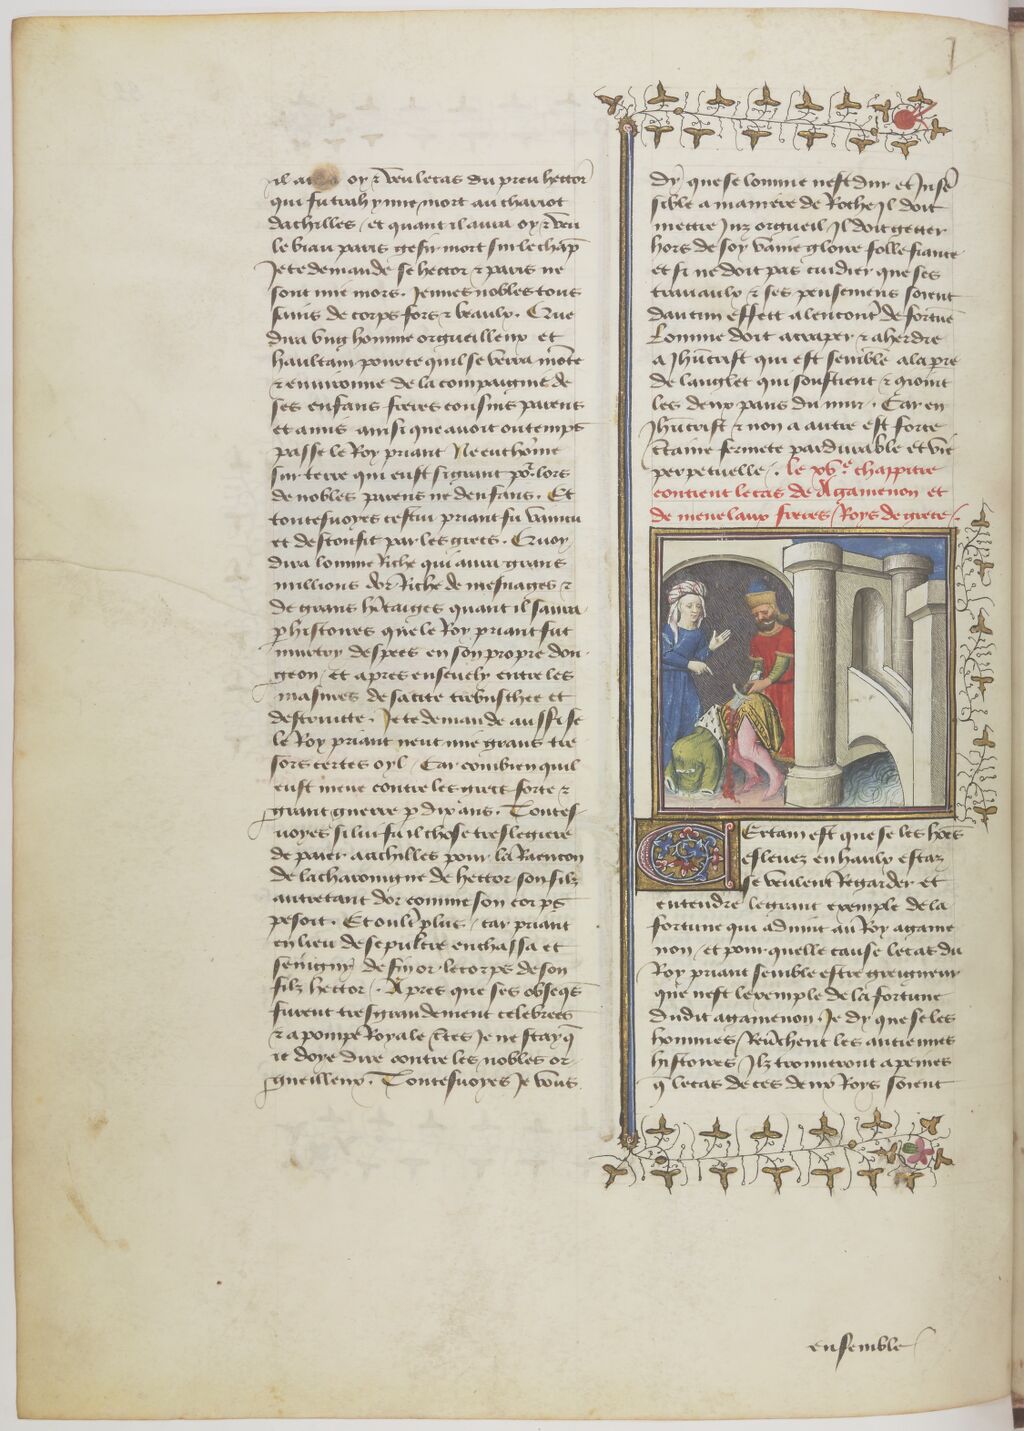 il aura oy & veu le cas du preu hector
qui fu trahynne mort au chariot
dachilles / et quant il aura oy & veu
le biau paris gesir mort sur le chāp
Je te demande se hector & paris ne
sont mie mors . Jennes nobles tous
sains de corps fors & beaulx . Que
dira vng homme orgueilleux et
haultain pource quil se verra mōte
& enuironne de la compaignie de
ses enfans freres cousins parens
et amis ainsi que auoit ou temps
passe le Roy priant Ne eut hōme
sur terre qui eust si grant po2 lors
de nobles parens ne denfans . Et
toutesuoyes cestui priant fu vaincu
et desconfit par les grecs . Quoy
dira lomme Riche qui aura grans
millions dor Riche de mesnages &
de grans hītaiges quant il saura
p histoires que le Roy priant fut
murtry despees en son propre don
geon / Et apres enseuely entre les
masures de sa cite trebuschee et
destruitte . Je te demande aussi se
le Roy priant neut mie grans tre
sors certes oyl / Car combien quil
eust mene contre les grecs forte &
grant guerre p dix ans . Toutes
uoyes si lui fu il chose tres legiere
de paier a achilles pour la Raencon
de la charoingne de hector son filz
autretant dor comme son corps
pesoit . Et oult̄ plus / car priant
en lieu de sepulcre enchassa et
seuigny de fin or le corps de son
filz hector / . Apres que ses obseqs
furent tresgrandement celebrees
& a pompe Royale c̄tes Je ne scay q̄
ie doye dire contre les nobles or
gueilleux . Toutesuoyes Je vous
dy que se lomme nest dur et Insē
sible a maniere de Roche Il doit
mettre Jus orgueil / Il doit getter
hors de soy vaine gloire folle fiance
et si ne doit pas cuidier que ses
trauaulx & ses pensemens soient
daucun effect a lencontr̄ de fortune
Lomme doit acraper & aherdre
a Jhūcrist qui est semblē a la pre
de languet qui soustient & gioint
les deux pans du mur . Car en
Jhūcrist & non a autre est forte
c̄taine fermete pardurable et vie
perpetuelle / . le xvᵉ. chappitre
contient le cas de Agamenon et
de menelaux freres / Roys de grece / .
Certain est que se les hōes
esleuez en haulx estaz
se veulent Regarder et
entendre le grant exemple de la
fortune qui aduint au Roy agame
non / et pour quelle cause le cas du
Roy priant semble estre greigneur
que nest lexemple de la fortune
dudit agamenon . Je dy que se les
hommes Reūchent les anciennes
histoires / Ilz trouueront a peines
q̄ le cas de ces deux Roys soient
ensemble